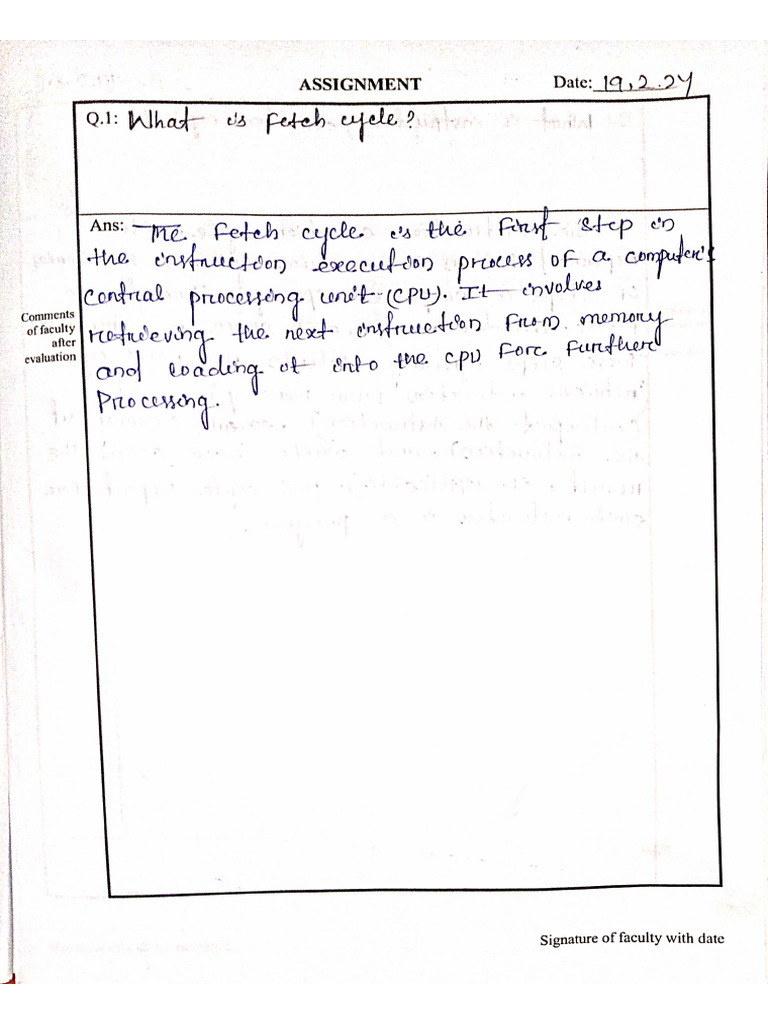 ASSIGNMENT
Date: 19.2.24
Q.1: What is fetch cycle?
Ans: The fetch cycle is the first step in
the instruction execution process of a computer's
central processing unit (CPU). It involves
retrieving the next instruction from memory
and loading it into the CPU for further
Processing.
Comments
of faculty
after
evaluation
Signature of faculty with date